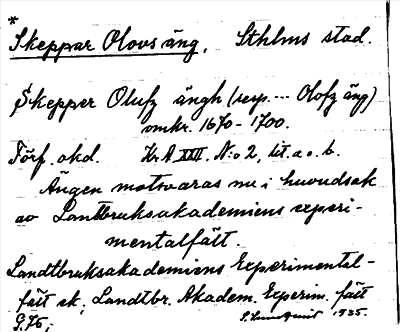 *
Skeppar Olovs äng, Sthlms stad.
Skepper Olufz ängh (resp. --- Olofz äng)
omkr. 1670-1700.
Förf. okd. Kr. A. XXII. N:o 2, lit. a o. b.
Ängen motsvaras nu i huvudsak
av Lantbruksakademiens experi-
mentalfält.
Landtbruksakademiens Experimental-
fält ek, Landtbr. Akadem. Experim. fält
G. 75; 1935.